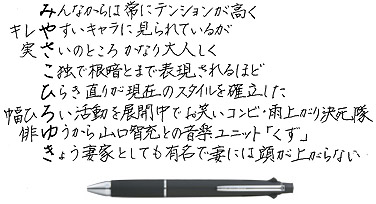 みんなからは常にテンションが高く
キレやすいキャラに見られているが
実さいのところかなり大人しく
こ独で根暗とまで表現されるほど
ひらき直りが現在のスタイルを確立した
幅ひろい活動を展開中でお笑いコンビ・雨上がり決死隊
俳ゆうから山口智充との音楽ユニット「くず」
きょう妻家としても有名で妻には頭が上がらない